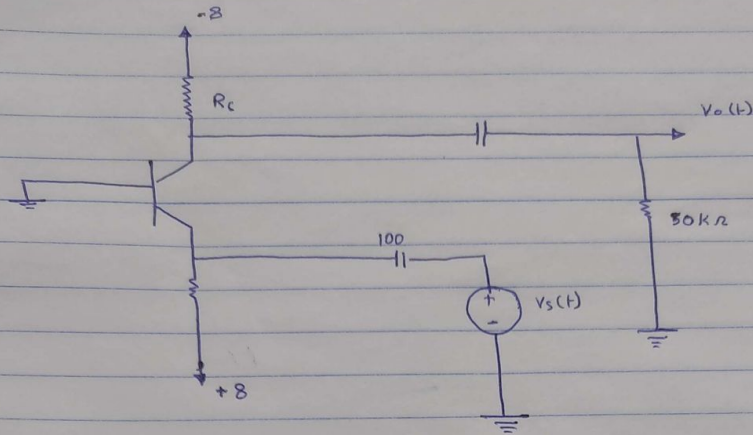 -8
Rc
Vo(t)
50KΩ
100
+
-
Vs(t)
+8